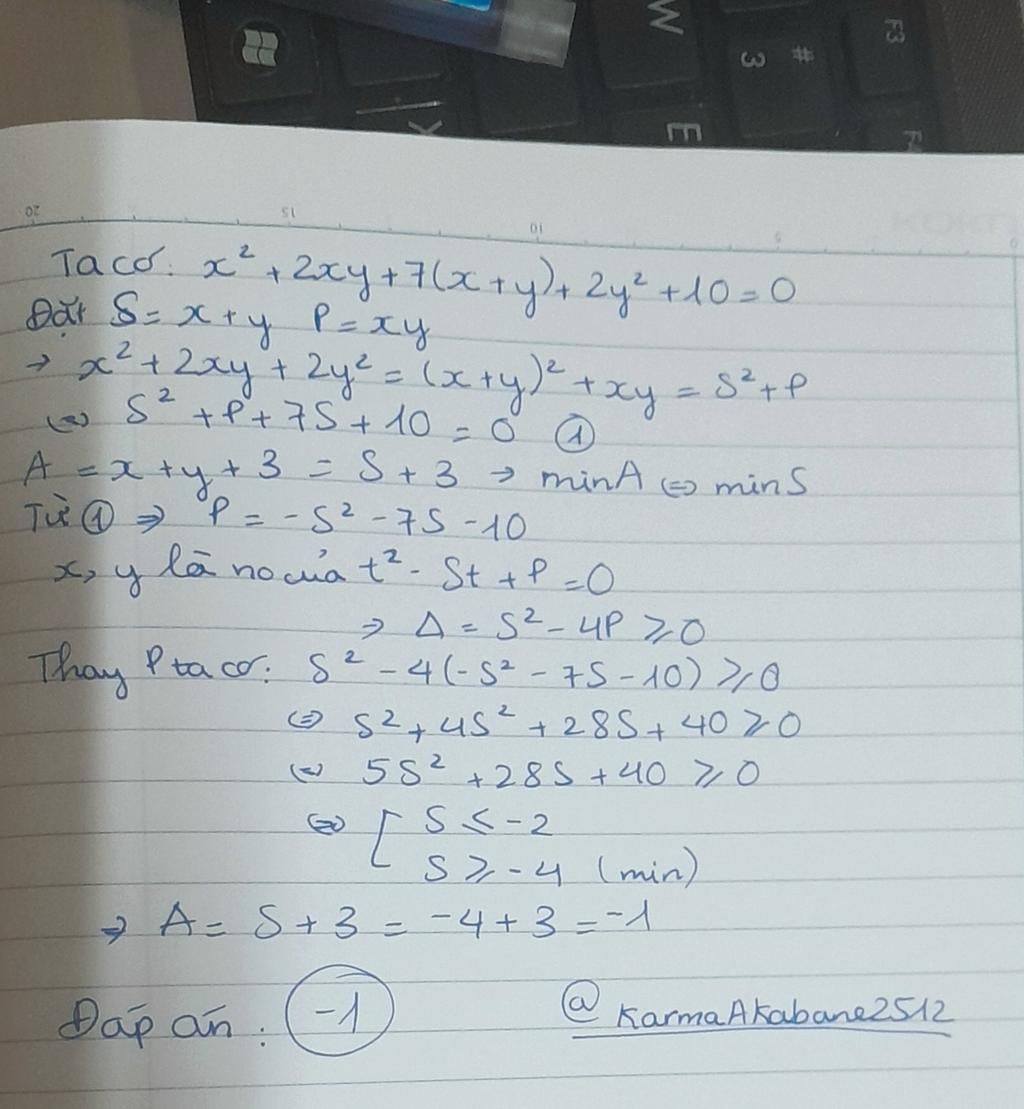 W
3
#
F3
E
20
15
10
5
Ta có: x² + 2xy + 7(x + y) + 2y² + 10 = 0
Đặt S = x + y P = xy
→ x² + 2xy + 2y² = (x + y)² + xy = S² + P
⇔ S² + P + 7S + 10 = 0 ①
A = x + y + 3 = S + 3 → minA ⇔ minS
Từ ① ⇒ P = -S² - 7S - 10
x, y là no của t² - St + P = 0
⇒ Δ = S² - 4P ≥ 0
Thay P ta có: S² - 4(-S² - 7S - 10) ≥ 0
⇔ S² + 4S² + 28S + 40 ≥ 0
⇔ 5S² + 28S + 40 ≥ 0
⇔ [ S ≤ -2
S ≥ -4 (min)
⇒ A = S + 3 = -4 + 3 = -1
Đáp án: -1
@KarmaAkabane2512